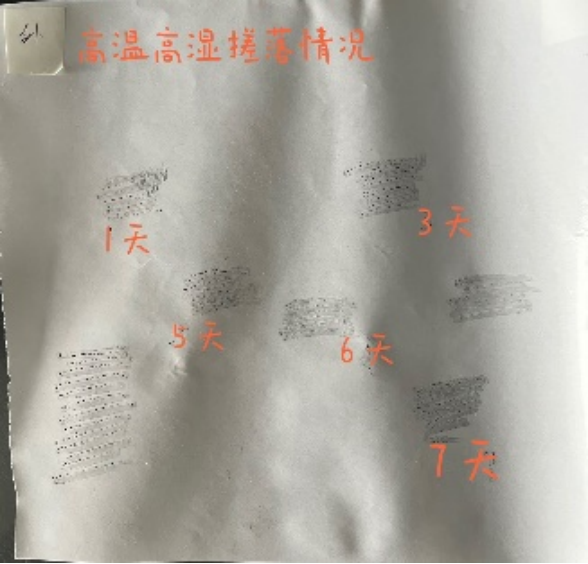 高温高湿搓落情况
1天
3天
5天
6天
7天